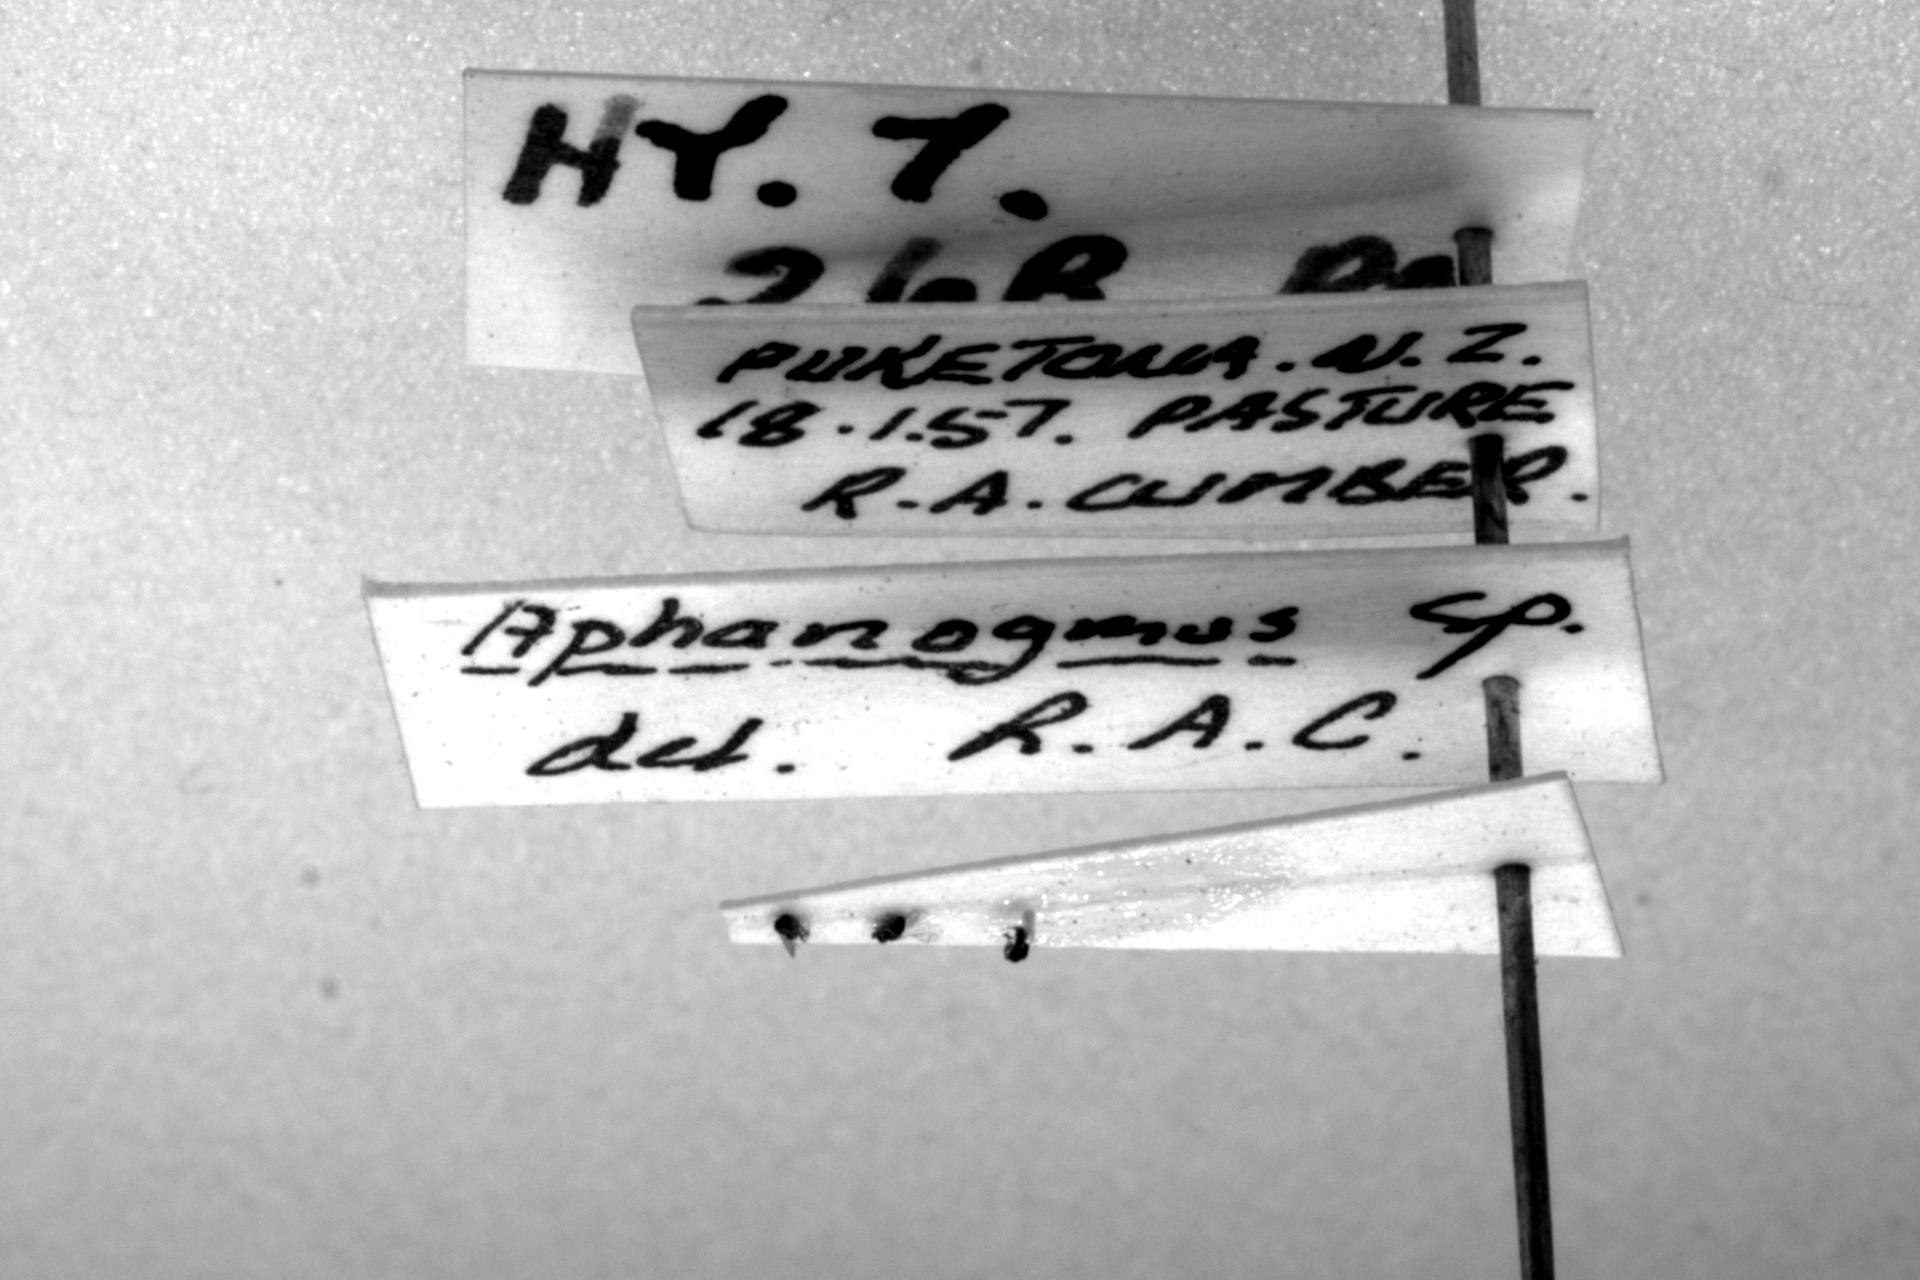 HY. 7.
PUKETONA. N.Z.
18.1.57. PASTURE
R.A. CUMBER.
Aphanogmus sp.
det. R.A.C.